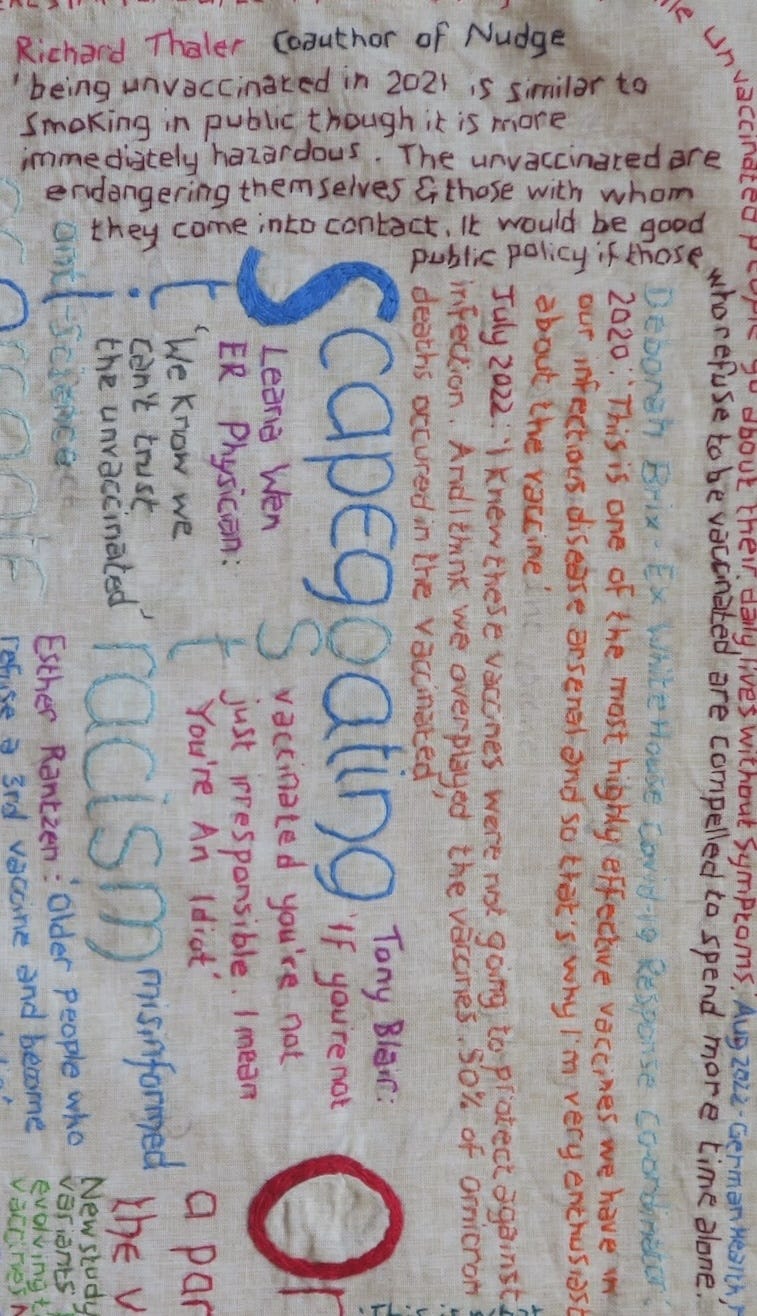 Richard Thaler Coauthor of Nudge
'being unvaccinated in 2021 is similar to
smoking in public though it is more
immediately hazardous. The unvaccinated are
endangering themselves & those with whom
they come into contact. It would be good
public policy if those
who refuse to be vaccinated are compelled to spend more time alone.
unvaccinated people go about their daily lives without symptoms,' Aug 2022. German Health,
Deborah Brix. Ex White House Covid-19 Response Co-ordinator.
2020: 'This is one of the most highly effective vaccines we have in
our infectious disease arsenal and so that's why I'm very enthusiast
about the vaccine'
July 2022: 'I knew these vaccines were not going to protect against
infection. And I think we overplayed the vaccines. 50% of omicron
deaths occured in the vaccinated'
Scapegoating
Tony Blair:
'If you're not
vaccinated you're not
just irresponsible. I mean
You're An Idiot'
Leana Wen
ER Physician:
'We know we
can't trust
the unvaccinated'
anti-science
racism
misinformed
Esther Rantzen: 'Older people who
refuse a 3rd vaccine and become
Or
a par
the v
New study
variants
evolving t
vaccines
'This is what